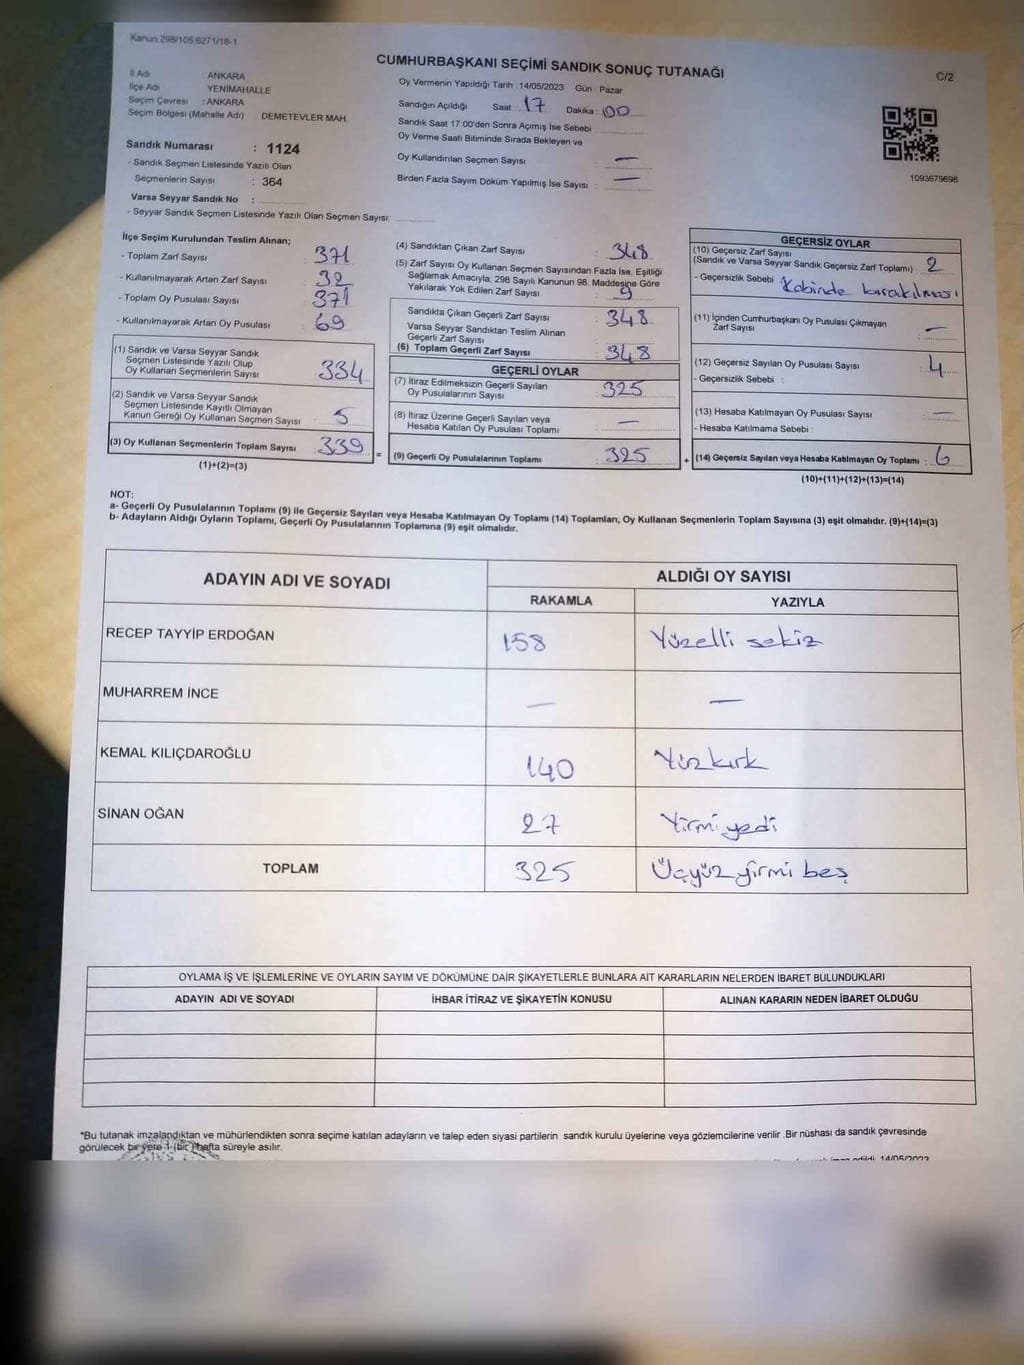 Kanun 298/105;6271/18-1
CUMHURBAŞKANI SEÇİMİ SANDIK SONUÇ TUTANAĞI
C/2
İl Adı : ANKARA
İlçe Adı YENİMAHALLE
Seçim Çevresi : ANKARA
Seçim Bölgesi (Mahalle Adı) DEMETEVLER MAH.
Oy Vermenin Yapıldığı Tarih 14/05/2023 Gün Pazar
Sandığın Açıldığı Saat 17 Dakika 00
Sandık Saat 17:00'den Sonra Açımış İse Sebebi
Oy Verme Saati Bitiminde Sırada Bekleyen ve
Oy Kullandırılan Seçmen Sayısı : —
Birden Fazla Sayım Döküm Yapılmış İse Sayısı : —
1093679698
Sandık Numarası : 1124
- Sandık Seçmen Listesinde Yazılı Olan
Seçmenlerin Sayısı : 364
Varsa Seyyar Sandık No :
- Seyyar Sandık Seçmen Listesinde Yazılı Olan Seçmen Sayısı:
İlçe Seçim Kurulundan Teslim Alınan;
- Toplam Zarf Sayısı : 371
- Kullanılmayarak Artan Zarf Sayısı : 32
- Toplam Oy Pusulası Sayısı : 371
- Kullanılmayarak Artan Oy Pusulası : 69
(1) Sandık ve Varsa Seyyar Sandık
Seçmen Listesinde Yazılı Olup
Oy Kullanan Seçmenlerin Sayısı : 334
(2) Sandık ve Varsa Seyyar Sandık
Seçmen Listesinde Kayıtlı Olmayan
Kanun Gereği Oy Kullanan Seçmen Sayısı : 5
(3) Oy Kullanan Seçmenlerin Toplam Sayısı : 339
(1)+(2)=(3)
=
(4) Sandıktan Çıkan Zarf Sayısı : 348
(5) Zarf Sayısı Oy Kullanan Seçmen Sayısından Fazla İse, Eşitliği
Sağlamak Amacıyla; 298 Sayılı Kanunun 98. Maddesine Göre
Yakılarak Yok Edilen Zarf Sayısı : 9
Sandıkta Çıkan Geçerli Zarf Sayısı : 348
Varsa Seyyar Sandıktan Teslim Alınan
Geçerli Zarf Sayısı :
(6) Toplam Geçerli Zarf Sayısı : 348
GEÇERLİ OYLAR
(7) İtiraz Edilmeksizin Geçerli Sayılan
Oy Pusulalarının Sayısı : 325
(8) İtiraz Üzerine Geçerli Sayılan veya
Hesaba Katılan Oy Pusulası Toplamı : —
(9) Geçerli Oy Pusulalarının Toplamı : 325
+
GEÇERSİZ OYLAR
(10) Geçersiz Zarf Sayısı
(Sandık ve Varsa Seyyar Sandık Geçersiz Zarf Toplamı) : 2
- Geçersizlik Sebebi : Kabinde bırakılması
(11) İçinden Cumhurbaşkanı Oy Pusulası Çıkmayan
Zarf Sayısı : —
(12) Geçersiz Sayılan Oy Pusulası Sayısı : 4
- Geçersizlik Sebebi :
(13) Hesaba Katılmayan Oy Pusulası Sayısı : —
- Hesaba Katılmama Sebebi :
(14) Geçersiz Sayılan veya Hesaba Katılmayan Oy Toplamı : 6
(10)+(11)+(12)+(13)=(14)
NOT:
a- Geçerli Oy Pusulalarının Toplamı (9) ile Geçersiz Sayılan veya Hesaba Katılmayan Oy Toplamı (14) Toplamları, Oy Kullanan Seçmenlerin Toplam Sayısına (3) eşit olmalıdır. (9)+(14)=(3)
b- Adayların Aldığı Oyların Toplamı, Geçerli Oy Pusulalarının Toplamına (9) eşit olmalıdır.
ADAYIN ADI VE SOYADI ALDIĞI OY SAYISI
RAKAMLA YAZIYLA
RECEP TAYYİP ERDOĞAN 158 Yüzelli sekiz
MUHARREM İNCE — —
KEMAL KILIÇDAROĞLU 140 Yüzkırk
SİNAN OĞAN 27 Yirmi yedi
TOPLAM 325 Üçyüz yirmi beş
OYLAMA İŞ VE İŞLEMLERİNE VE OYLARIN SAYIM VE DÖKÜMÜNE DAİR ŞİKAYETLERLE BUNLARA AİT KARARLARIN NELERDEN İBARET BULUNDUKLARI
ADAYIN ADI VE SOYADI İHBAR İTİRAZ VE ŞİKAYETİN KONUSU ALINAN KARARIN NEDEN İBARET OLDUĞU
*Bu tutanak imzalandıktan ve mühürlendikten sonra seçime katılan adayların ve talep eden siyasi partilerin sandık kurulu üyelerine veya gözlemcilerine verilir .Bir nüshası da sandık çevresinde
görülecek bir yere 1 (bir) hafta süreyle asılır.
edildi. 14/05/2023